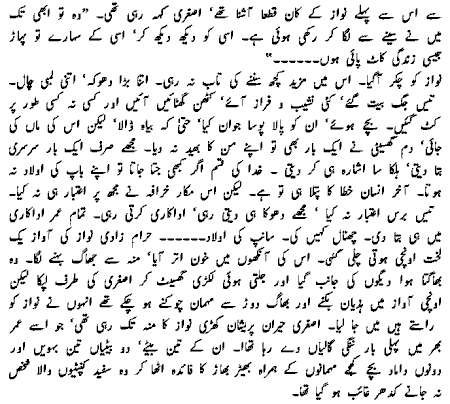 سے اس سے پہلے نواز کے کان قطعا آشنا تھے‘ اصغری کہہ رہی تھی۔ ”وہ تو ابھی تک
میں نے سینے سے لگا کر رکھی ہوئی ہے۔ اسی کو دیکھ دیکھ کر‘ اسی کے سہارے تو پہاڑ
جیسی زندگی کاٹ پائی ہوں------“
نواز کو چکر آگیا۔ اس میں مزید کچھ سننے کی تاب نہ رہی۔ اتنا بڑا دھوکہ‘ اتنی لمبی چال۔
تیس جگ بیت گئے‘ کئی نشیب و فراز آئے‘ کٹھن گھٹائیں آئیں اور کسی نہ کسی طور پر
کٹ گئیں۔ بچے ہوئے‘ ان کو پالا پوسا جوان کیا‘ حتیٰ کہ بیاہ ڈالا‘ لیکن اس کی ماں کی
جائی‘ دم گھٹی نے ایک بار بھی تو اپنے من کا بھید نہ دیا۔ مجھے صرف ایک بار سرسری
بتا دیتی‘ ہلکا سا اشارہ ہی کر دیتی ۔ خدا کی قسم اگر کبھی جتا جاتا تو اپنے باپ کی اولاد نہ
ہوتا۔ آخر انسان خطا کا پتلا ہی تو ہے۔ لیکن اس مکار خرافہ نے مجھ پر اعتبار ہی نہ کیا۔
تیس برس اعتبار نہ کیا ‘ مجھے دھوکا ہی دیتی رہی‘ اداکاری کرتی رہی۔ تمام عمر اداکاری
میں ہی بتا دی۔ چھنال کہیں کی۔ سانپ کی اولاد------ حرام زادی نواز کی آواز یک
لخت اونچی ہوتی چلی گئی۔ اس کی آنکھوں میں خون اتر آیا‘ منہ سے جھاگ بہنے لگا۔ وہ
بھاگتا ہوا دیگوں کی جانب گیا اور جلتی ہوئی لکڑی گھسیٹ کر اصغری کی طرف لپکا لیکن
اونچی آواز میں ہذیان بکنے اور بھاگ دوڑ سے مہمان چوکنے ہو چکے تھے انہوں نے نواز کو
راستے ہیں میں جا لیا۔ اصغری حیران پریشان کھڑی نواز کا منہ تک رہی تھی‘ جو اسے عمر
بھر میں پہلی بار ننگی گالیاں دے رہا تھا۔ ان کے تین بیٹے‘ دو بیٹیاں تین بہوئیں اور
دونوں داماد بچے کچھے مہمانوں کے ہمراہ بھیڑ بھاڑ کا فائدہ اٹھا کر وہ سفید کنپٹیوں والا شخص
نہ جانے کدھر غائب ہو گیا تھا۔